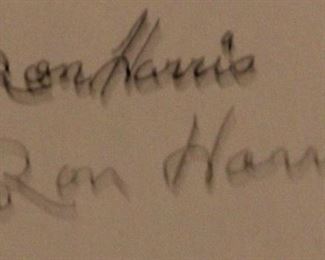 Ron Harris
Ron Harr